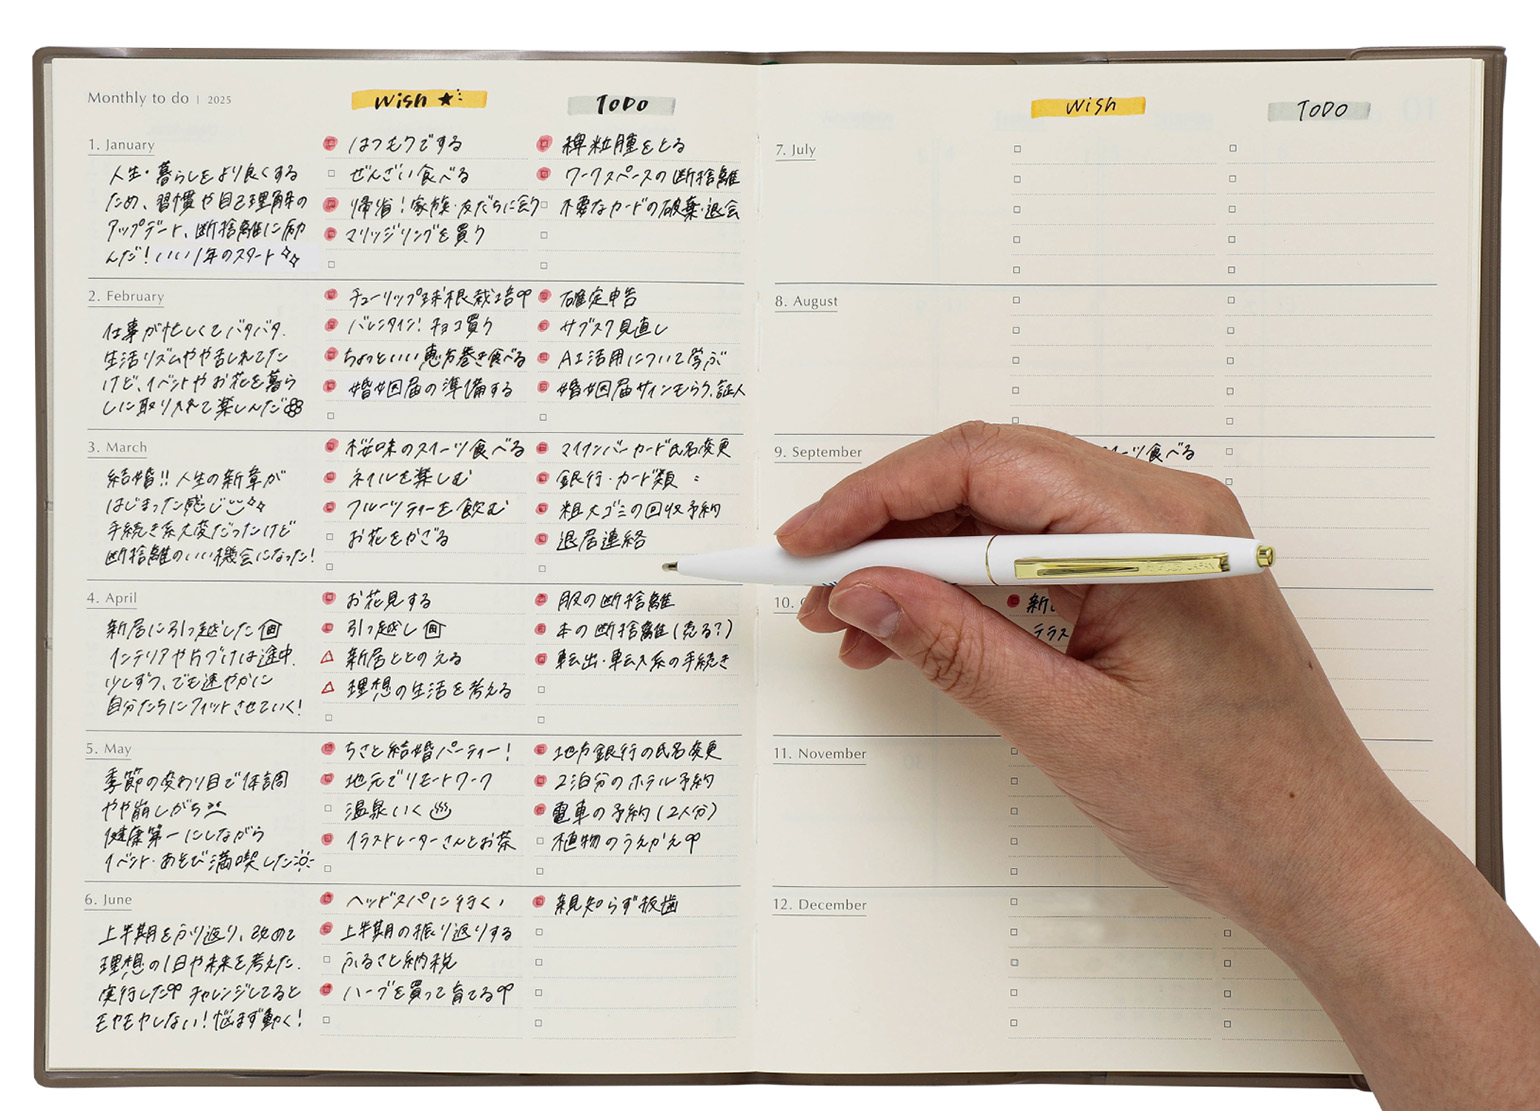 Monthly to do | 2025
Wish ★
ToDo
1. January
人生・暮らしをより良くする
ため、習慣や自己理解の
アップデート、断捨離に励
んだ！いい1年のスタート
はつもうでする
ぜんざい食べる
帰省！家族・友だちに会う
マリッジリングを買う
稗粒腫をとる
ワークスペースの断捨離
不要なカードの破棄・退会
2. February
仕事が忙しくてバタバタ.
生活リズムやや乱れてた
けど、イベントやお花を暮ら
しに取り入れて楽しんだ
チューリップ球根栽培
バレンタイン！チョコ買う
ちょっといい恵方巻き食べる
婚姻届の準備する
確定申告
サブスク見直し
AI活用について学ぶ
婚姻届サインもらう.証人
3. March
結婚!! 人生の新章が
はじまった感じ
手続き系大変だったけど
断捨離のいい機会になった！
桜味のスイーツ食べる
ネイルを楽しむ
フルーツティーを飲む
お花をかざる
マイナンバーカード氏名変更
銀行・カード類 :
粗大ゴミの回収予約
退居連絡
4. April
新居に引っ越した
インテリアや片づけは途中.
少しずつ、でも速やかに
自分たちにフィットさせていく！
お花見する
引っ越し
新居ととのえる
理想の生活を考える
服の断捨離
本の断捨離（売る？）
転出・転入系の手続き
5. May
季節の変わり目で体調
やや崩しがち
健康第一にしながら
イベント・あそび満喫した
ちさと結婚パーティー！
地元でリモートワーク
温泉いく
イラストレーターさんとお茶
地方銀行の氏名変更
2泊分のホテル予約
電車の予約（2人分）
植物のうえかえ
6. June
上半期をふり返り、改めて
理想の1日や未来を考えた.
実行した チャレンジしてると
モヤモヤしない！悩まず動く！
ヘッドスパに行く
上半期の振り返りする
ふるさと納税
ハーブを買って育てる
親知らず抜歯
Wish
ToDo
7. July
8. August
9. September
ーツ食べる
10.
新し
テラス
11. November
12. December